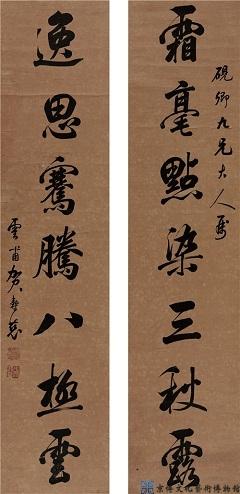 硯卿九兄大人屬
霜毫點染三秋露
逸思騫騰八極雲
雲甫賀壽慈
京傳文化藝術博物館